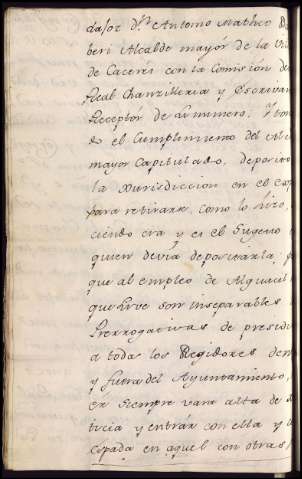 dasor Dn Antonio Matheo B
beri Alcalde mayor de la Vi
de Caceres con la Comision de
Real Chanzilleria y Escrivan
Receptor de su numero, Y
do el Cumplimiento del
mayor Capitulado, deposito
la Jurisdiccion en el
para retirarse, como lo hizo,
ciendo era y es el Eugenio
quien devia depositarla, p
que al empleo de Alguacil
que sirve son inseparables
Prerrogativas de presidi
a todos los Regidores den
y fuera del Ayuntamiento,
er siempre vara alta de
ticia y entrar con ella y
espada en aquel con otras,